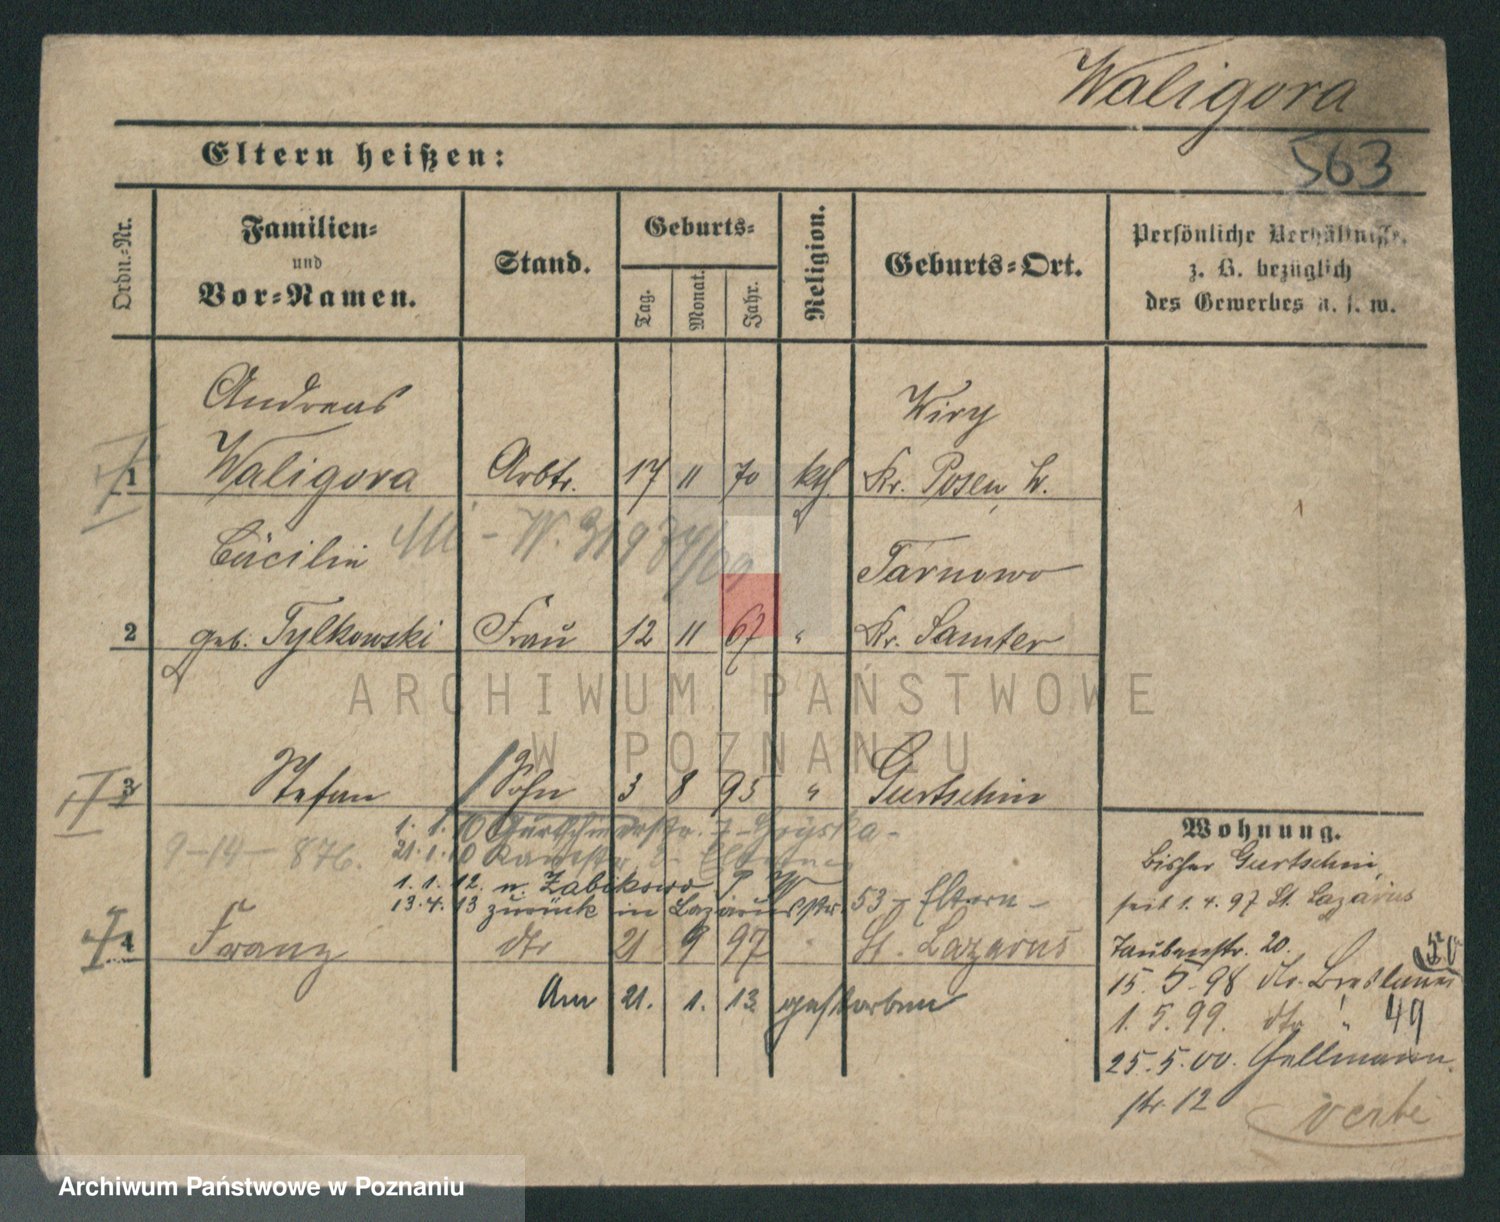 Waligora
563
Eltern heißen:
Ordn.-Nr.
Familien-
und
Vor-Namen.
Stand.
Geburts-
Tag.
Monat.
Jahr.
Religion.
Geburts-Ort.
Persönliche Verhältnisse,
z. B. bezüglich
des Gewerbes u. s. w.
Andreas Wiry
1 Waligora Arbtr. 17 11 70 kth. Kr. Posen, W.
Cäcilie Tarnowo
2 geb. Tylkowski Frau 12 11 67 " Kr. Samter
ARCHIWUM PAŃSTWOWE
W POZNANIU
3 Stefan Sohn 3 8 95 " Gurtschin
1. 1. 10
9-14- 876. 21.1.10
1. 1. 12. n. Zabikowo P. W
13.4.13 zurück in Lazarusstr. 53 - Eltern -
4 Franz dto 21 9 97 " St. Lazarus
Am 21. 1. 13 gestorben
Wohnung.
bisher Gurtschin,
seit 1.4.97 St. Lazarus
Taubenstr. 20.
15.5.98 50
1.5.99. dto " 49
25.5.00. Hellmann
str 12
Archiwum Państwowe w Poznaniu